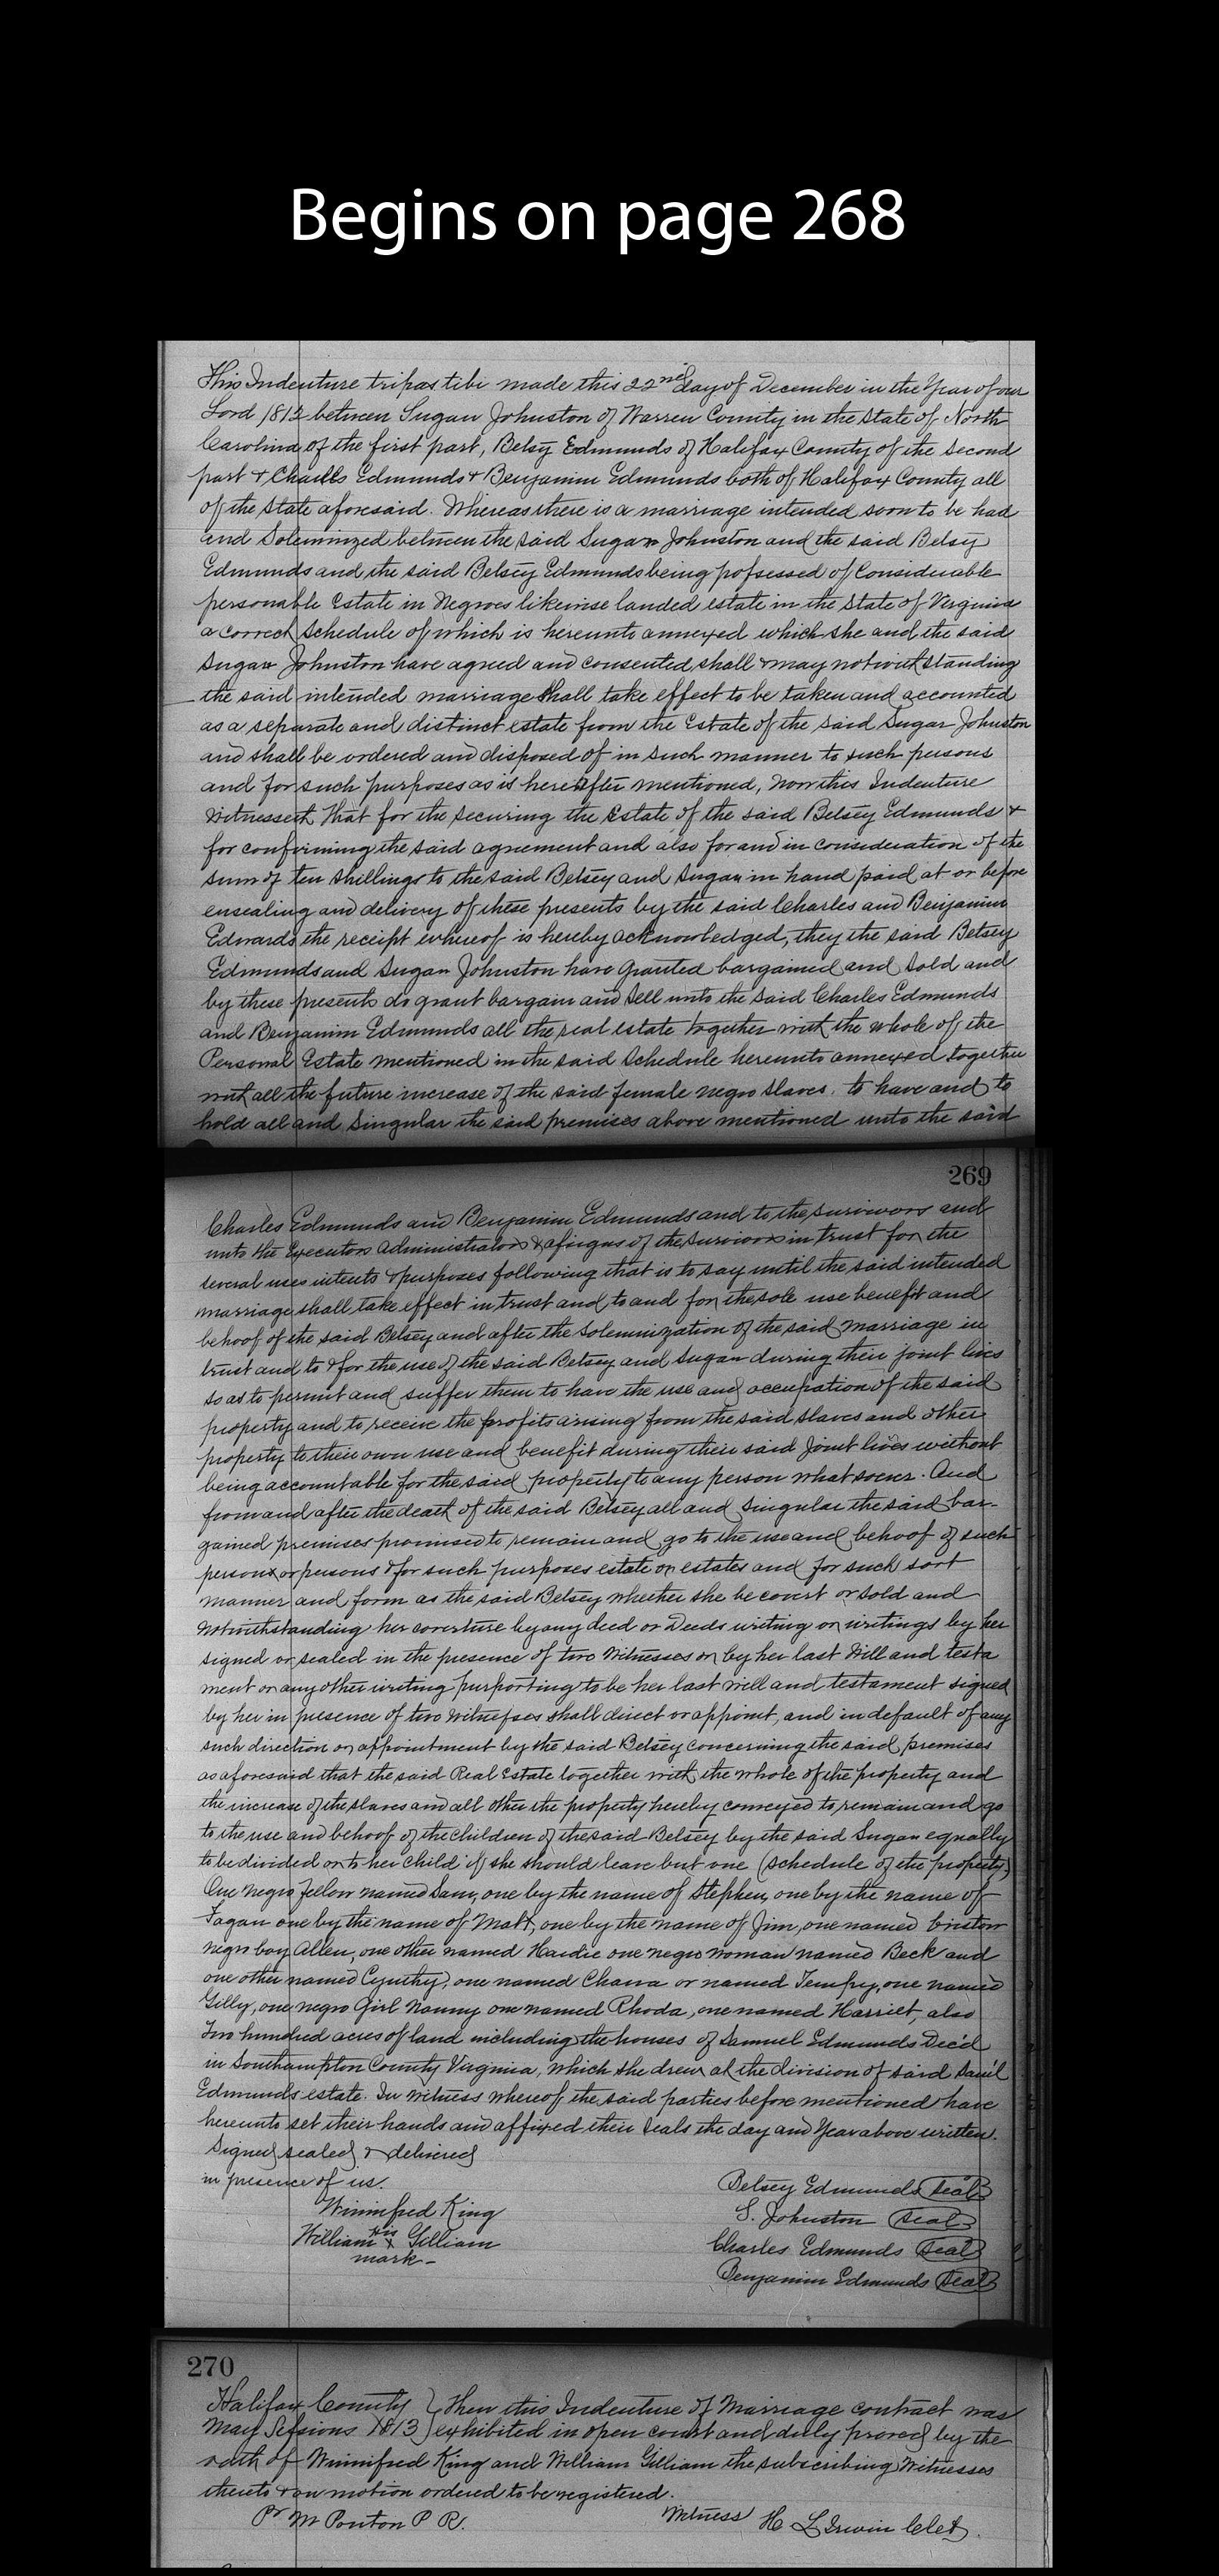 Begins on page 268
This Indenture tripas tibi made this 22nd day of December in the Year of our
Lord 1812 between Sugan Johnston of Warren County in the State of North
Carolina of the first part, Betsy Edmunds of Halifax County of the Second
part & Charles Edmunds & Benjamin Edmunds both of Halifax County all
of the State aforesaid. Whereas there is a marriage intended soon to be had
and Soleminized between the said Sugan Johnston and the said Betsy
Edmunds and the said Betsey Edmunds being possessed of Considerable
personable Estate in Negroes likewise landed estate in the State of Virginia
a correct schedule of which is hereunto annexed which she and the said
Sugan Johnston have agreed and consented shall & may notwithstanding
the said intended marriage shall take effect to be taken and accounted
as a separate and distinct estate from the Estate of the said Sugar Johnston
and shall be ordered and disposed of in such manner to such persons
and for such purposes as is hereafter mentioned, Now this Indenture
Witnesseth that for the securing the Estate of the said Betsey Edmunds &
for confirming the said agreement and also for and in consideration of the
sum of ten shillings to the said Betsey and Sugan in hand paid at or before
ensealing and delivery of these presents by the said Charles and Benjamin
Edwards the receipt whereof is hereby acknowledged, they the said Betsey
Edmunds and Sugan Johnston have granted bargained and sold and
by these presents do grant bargain and sell unto the said Charles Edmunds
and Benjamin Edmunds all the real estate together with the whole of the
Personal Estate mentioned in the said Schedule hereunto annexed together
with all the future increase of the said female negro slaves. to have and to
hold all and Singular the said premises above mentioned unto the said
269
Charles Edmunds and Benjamin Edmunds and to the survivors and
unto the Executors Administrators & assigns of the survivors in trust for the
several uses intents & purposes following that is to say until the said intended
marriage shall take effect in trust and to and for the sole use benefit and
behoof of the said Betsey and after the Solemnization of the said marriage in
trust and to & for the use of the said Betsey and Sugan during their joint lives
so as to permit and suffer them to have the use and occupation of the said
property and to receive the profits arising from the said slaves and other
property to their own use and benefit during their said Joint lives without
being accountable for the said property to any person whatsoever. And
from and after the death of the said Betsey all and Singular the said bar-
gained premises promised to remain and go to the use and behoof of such
person or persons & for such purposes estate or estates and for such sort
manner and form as the said Betsey whether she be covert or sold and
Notwithstanding her coverture by any deed or Deeds writing or writings by her
signed or sealed in the presence of two Witnesses or by her last Will and testa
ment or any other writing purporting to be her last will and testament signed
by her in presence of two witnesses shall direct or appoint, and in default of any
such direction or appointment by the said Betsey concerning the said premises
as aforesaid that the said Real Estate together with the whole of the property and
the increase of the slaves and all other the property hereby conveyed to remain and go
to the use and behoof of the Children of the said Betsey by the said Sugan equally
to be divided or to her child if she should leave but one (schedule of the property)
One negro fellow named Sam, one by the name of Stephen, one by the name of
Fagan one by the name of Matt, one by the name of Jim, one named Briston
negro boy Allen, one other named Hardie one negro woman named Beck and
one other named Cynthy, one named Chana or named Tempy, one named
Gilly, one negro Girl Nanny one named Rhoda, one named Harriet, also
Two hundred acres of land including the houses of Samuel Edmunds Dec'd
in Southampton County Virginia, which she drew at the division of said Sam'l
Edmunds estate. In Witness whereof the said parties before mentioned have
hereunto set their hands and affixed their Seals the day and Year above written.
Signed sealed & delivered
in presence of us.
Betsey Edmunds Seal
Winnifred King
S. Johnston Seal
William his x Gilliam
mark
Charles Edmunds Seal
Benjamin Edmunds Seal
270
Halifax County } Then this Indenture of Marriage contract was
May Sessions 1813 } exhibited in open court and duly proved by the
oath of Winnifred King and William Gilliam the subscribing Witnesses
thereto & on motion ordered to be registered.
Pr M Ponton P R. Witness H L Irwin Clet.